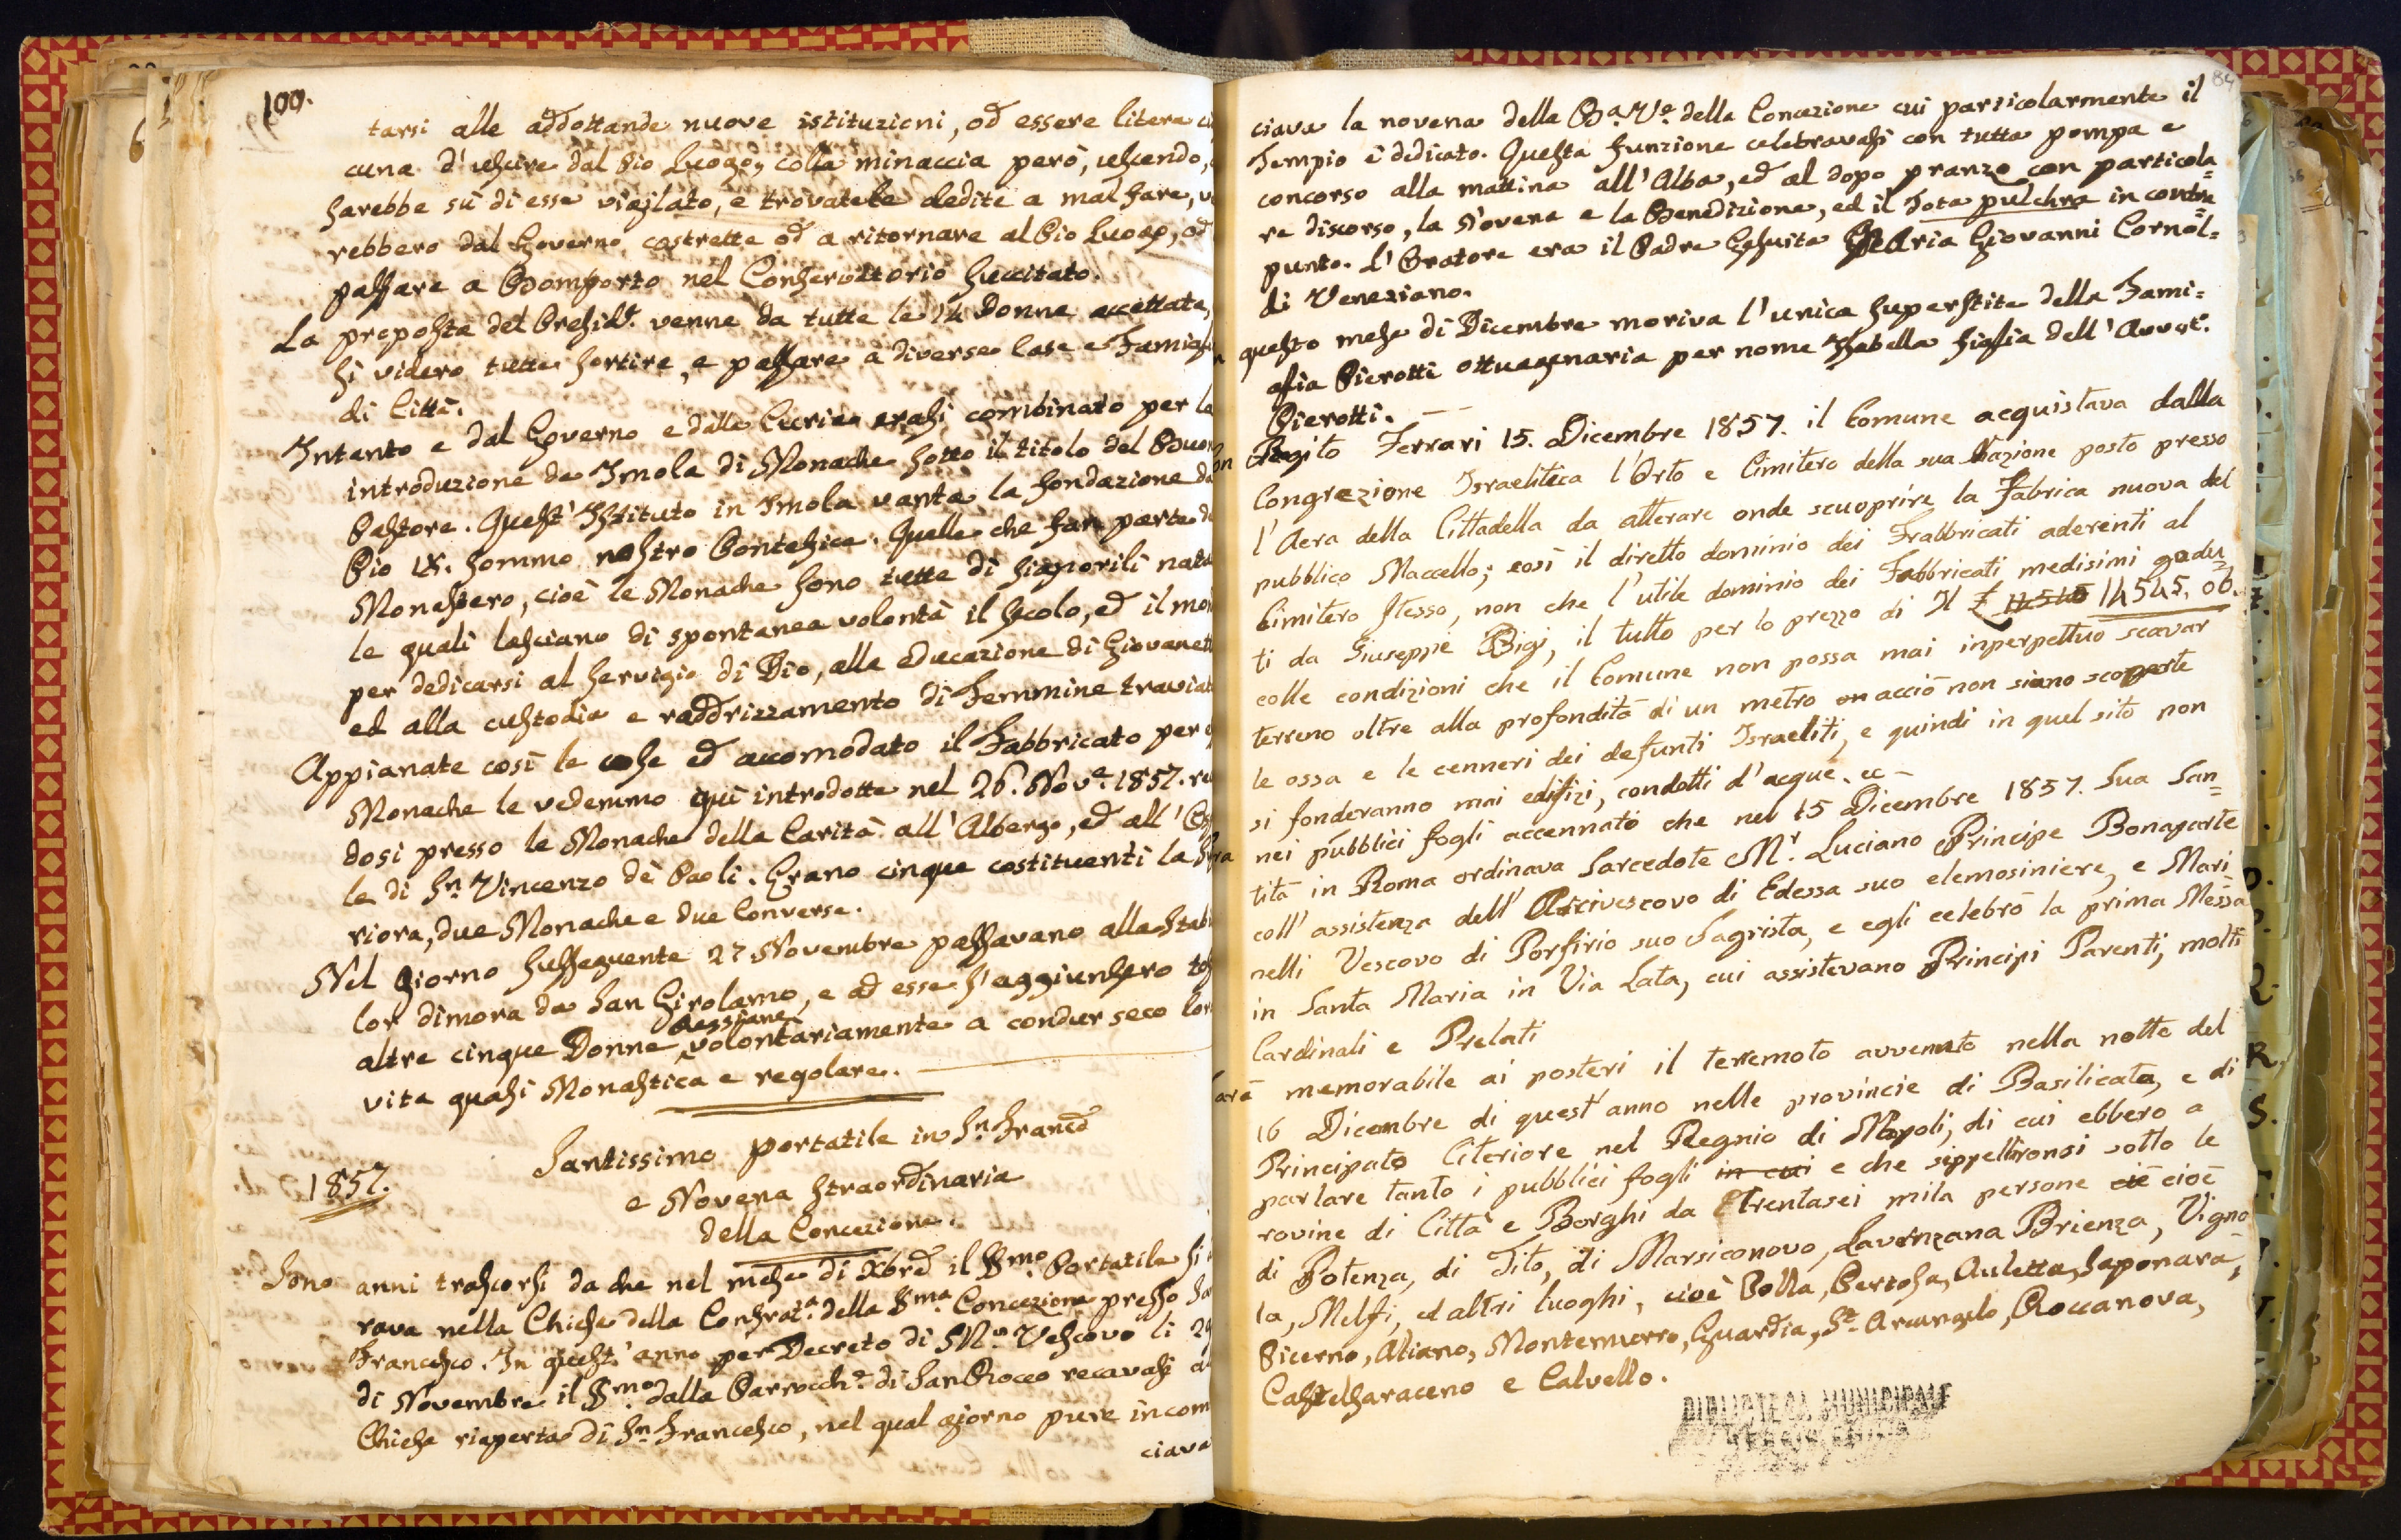 100.
tarsi alle addottande nuove istituzioni, od essere libera
cuna d'uscire dal Pio Luogo, colla minaccia però, uscendo,
sarebbe sù di esse vigilato, e trovatele dedite a mal fare,
rebbero dal Governo costrette od a ritornare al Pio Luogo, od
passare a Bomporto nel Conservatorio succitato.
La proposta del Presid.e venne da tutte le 14 Donne accettata,
si videro tutte sortire, e passare a diverse Case e Famigl
di Città.
Intanto e dal Governo e dalla Curia erasi combinato per la
introduzione da Imola di Monache sotto il titolo del Buon
Pastore. Quest'Istituto in Imola vanta la fondazione da
Pio IX. sommo nostro Pontefice. Quelle che fan parte
Monastero, cioè le Monache sono tutte di signorili nata
le quali lasciano di spontanea volontà il secolo, ed il mon
per dedicarsi al servigio di Dio, alla educazione di Giovanett
ed alla custodia e raddrizzamento di Femmine traviat
Appianate così le cose ed accomodato il Fabbricato per
Monache le vedemmo quì introdotte nel 26. Nov.e 1857. re
dosi presso le Monache della Carità all'Albergo, ed all'
le di S.n Vincenzo de' Paoli. Erano cinque costituenti la
riora, due Monache e due Converse.
Nel giorno susseguente 27 Novembre passavano alla stabi
lor dimora da San Girolamo, e ad esse s'aggiunsero
Reggiane
altre cinque Donne volontariamente a condur seco lor
vita quasi Monastica e regolare.
Santissimo portatile in S.n Franc.o
1857.
e Novena straordinaria
della Concezione.
Sono anni trascorsi da che nel mese di Xbre il S.mo Portatile si
rava nella Chiesa della Confrat.a della S.ma Concezione presso
Francesco. In quest'anno per Decreto di M.r Vescovo li 29
di Novembre il S.mo dalla Parrocch.a di San Rocco recavasi
Chiesa riaperta di S.n Francesco, nel qual giorno pure incom
ciava
84
ciava la novena della B.a V.e della Concezione cui particolarmente il
Tempio è dedicato. Questa funzione celebravasi con tutta pompa e
concorso alla mattina all'Alba, ed al dopo pranzo con particola=
re discorso, la Novena e la Benedizione, ed il Tota pulchra in contra
punto. L'Oratore era il Padre Gesuita Maria Giovanni Cornol=
di Veneziano.
questo mese di Dicembre moriva l'unica superstite della Fami=
glia Pierotti ottuagenaria per nome Isabella figlia dell'Avvoc.
Pierotti.
Rogito Ferrari 15. Dicembre 1857. il Comune acquistava dalla
Congrezione Israelitica l'Orto e Cimitero della sua Nazione posto presso
l'Aera della Cittadella da atterare onde scuoprire la Fabrica nuova del
pubblico Maccello; così il diretto dominio dei Frabbricati aderenti al
Cimitero stesso, non che l'utile dominio dei Fabbricati medisimi godu=
ti da Giuseppe Bigi, il tutto per lo prezzo di Il £ 14540 14545. 06.
colle condizioni che il Comune non possa mai inperpettuo scavar
terreno oltre alla profondità di un metro on acciò non siano scoperte
le ossa e le cenneri dei defunti Israeliti, e quindi in quel sito non
si fonderanno mai edifizi, condotti d'acque. ec -
nei pubblici fogli accennato che nel 15 Dicembre 1857. Sua San=
tità in Roma ordinava Sarcedote M.r Luciano Principe Bonaparte
coll'assistenza dell'Arcivescovo di Edessa suo elemosiniere, e Mari
nelli Vescovo di Porfirio suo Sagrista, e egli celebrò la prima Messa
in Santa Maria in Via Lata, cui assistevano Principi Parenti, molti
Cardinali e Prelati
arà memorabile ai posteri il terremoto avvenuto nella notte del
16 Dicembre di quest'anno nelle provincie di Basilicata, e di
Principato Citeriore nel Regnio di Napoli, di cui ebbero a
parlare tanto i pubblici fogli in cui e che seppellironsi sotto le
rovine di Città e Borghi da trentasei mila persone ciè cioè
di Potenza, di Tito, di Marsiconovo, Lavrnzana Brienza, Vigno
la, Melfi, ed altri luoghi, cioè Polla, Pertosa, Auletta, Saponara,
Picerno, Aliano, Montemurro, Guardia, S.t Arcangelo, Roccanova,
Castelsaraceno e Calvello.
BIBLIOTECA MUNICIPALE
REGGIO EMILIA